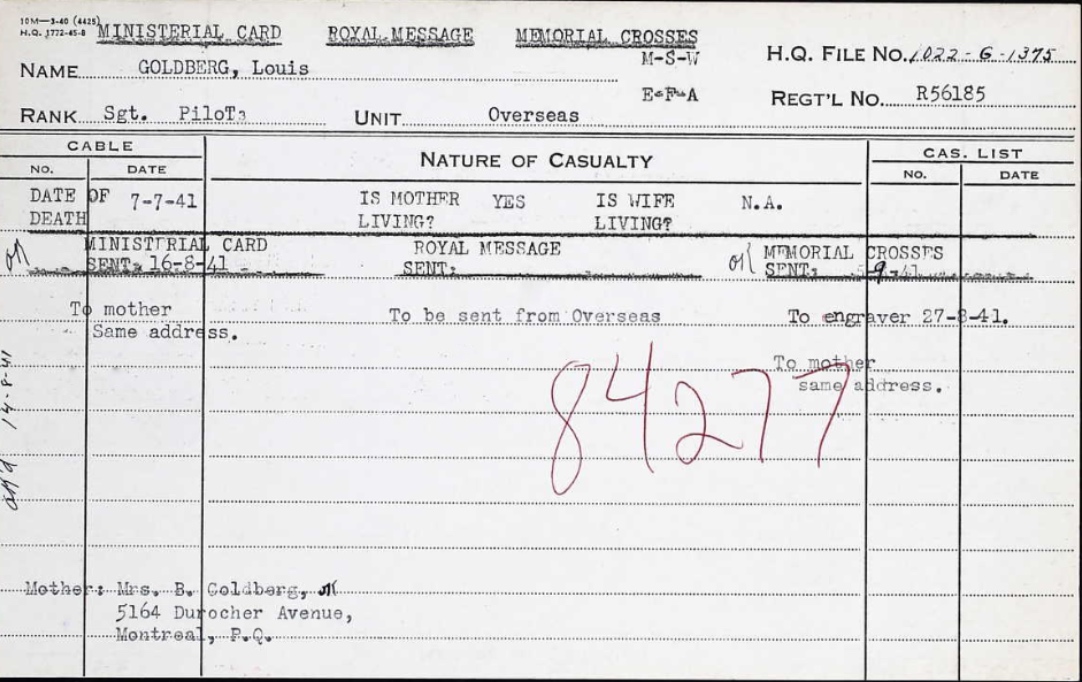 10M—3-40 (4425)
H.Q. 1772-45-8
MINISTERIAL CARD ROYAL MESSAGE MEMORIAL CROSSES
M-S-W
H.Q. FILE NO. 1022-G-1375
NAME GOLDBERG, Louis
E-F-A
REGT'L NO. R56185
RANK Sgt. Pilot UNIT Overseas
CABLE NATURE OF CASUALTY CAS. LIST
NO. DATE NO. DATE
DATE OF DEATH 7-7-41 IS MOTHER LIVING? YES IS WIFE LIVING? N.A.
MINISTERIAL CARD SENT: 16-8-41 ROYAL MESSAGE SENT: MEMORIAL CROSSES SENT: 5-9-41
To mother
Same address.
To be sent from Overseas
To engraver 27-8-41.
To mother
same address.
84277
14-8-41
Mother: Mrs. B. Goldberg,
5164 Durocher Avenue,
Montreal, P.Q.